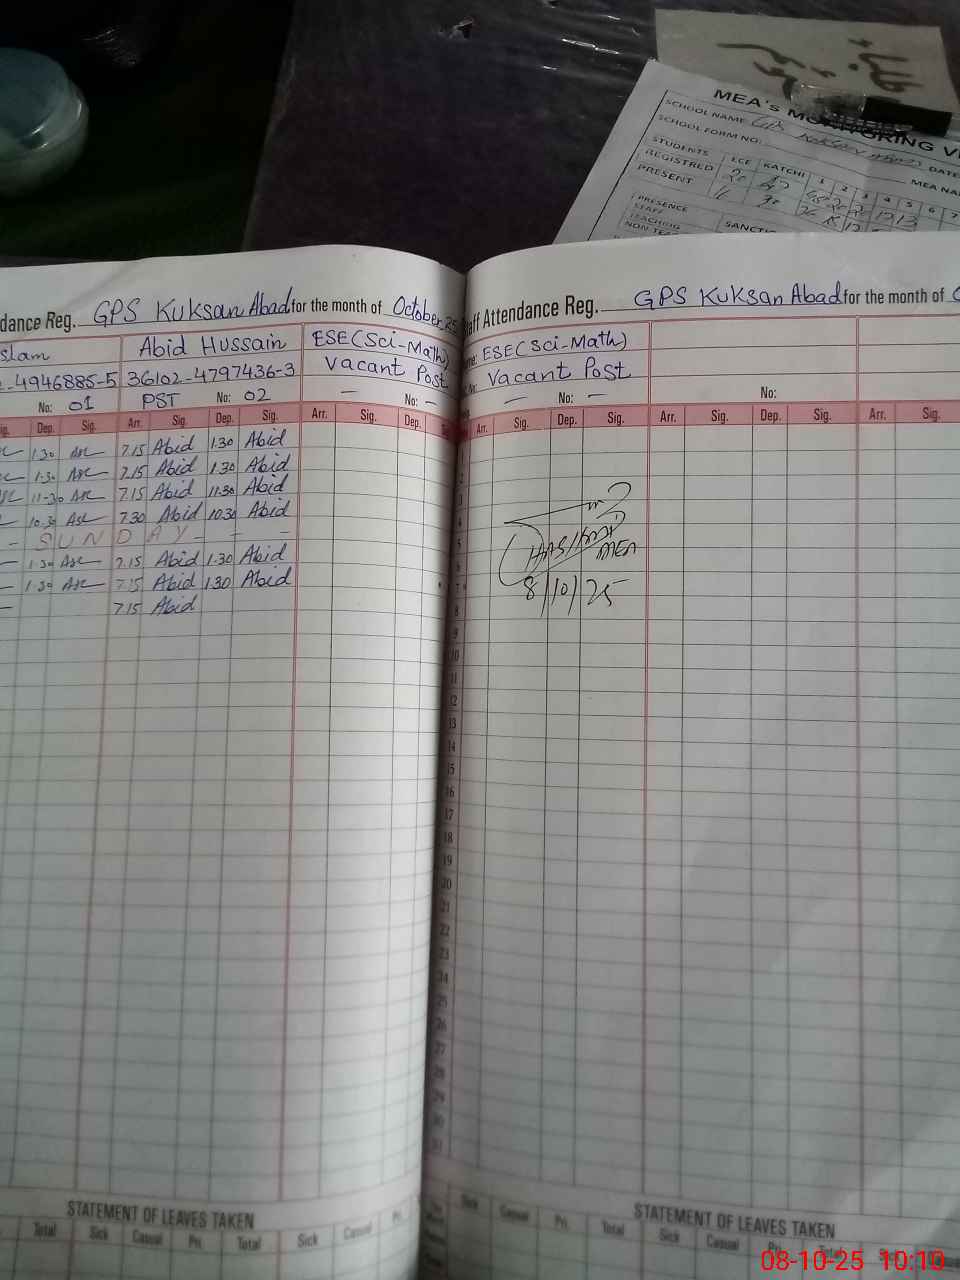 MEA's MONITORING V
SCHOOL NAME: GPS KUKSAN ABAD
SCHOOL FORM NO: DATE
MEA NA
STUDENTS ECE KATCHI 1 2 3 4 5 6 7
REGISTRED 20
PRESENT
PRESENCE
STAFF
TEACHING SANCTI
NON TEA
dance Reg. GPS Kuksan Abad for the month of October 25
slam Abid Hussain ESE(Sci-Math)
-4946885-5 36102-4797436-3 Vacant Post
No: 01 PST No: 02 — No: —
Sig. Dep. Sig. Arr. Sig. Dep. Sig. Arr. Sig. Dep.
1.30 7.15 Abid 1.30 Abid
1.30 7.15 Abid 1.30 Abid
11-30 7.15 Abid 11.30 Abid
10.30 7.30 Abid 10.30 Abid
- SUNDAY - - -
1.30 7.15 Abid 1.30 Abid
1.30 7.15 Abid 1.30 Abid
7.15 Abid
STATEMENT OF LEAVES TAKEN
Total Sick Casual Pri. Total Sick Casual Pri.
aff Attendance Reg. GPS Kuksan Abad for the month of
me: ESE(Sci-Math)
Vacant Post
— No: — No:
Arr. Sig. Dep. Sig. Arr. Sig. Dep. Sig. Arr. Sig.
3
4
5
6
7
8
9
10
11
12
13
14
15
16
17
18
19
20
21
22
23
24
25
26
27
28
29
30
31
MEA
8/10/25
STATEMENT OF LEAVES TAKEN
Sick Casual Pri. Total Sick Casual Pri. Total Sick
08-10-25 10:10